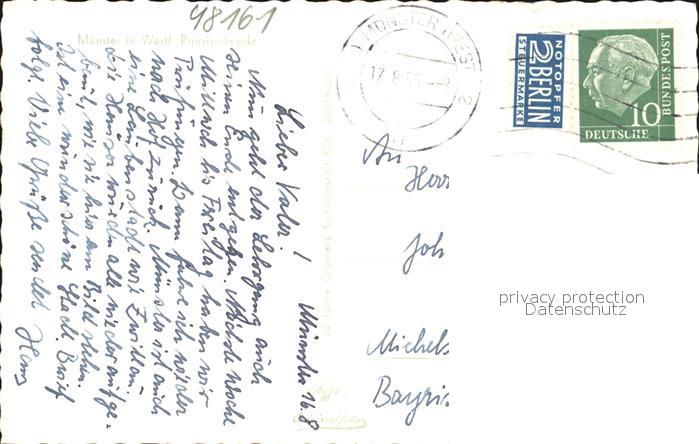 48161
Münster in Westf. Prinzipalmarkt
Münster 16.8
Lieber Vater!
Nun geht der Lehrgang auch
seinem Ende entgegen. Nächste Woche
Mittwoch bis Freitag haben wir
Prüfungen. Dann fahre ich wieder
nach Hof zurück. Münster ist auch
eine Laubenstadt wie Zwittau
die Häuser wurden alle wieder aufge-
baut, wie sie hier am Bild stehen.
Ist eine wunderschöne Stadt. Brief
folgt. Viele Grüße sendet Hans
50 Jahre Cramers Kunstanstalt KG., Dortmund
Originalfoto
MÜNSTER (WESTF) 2
17.8.5
NOTOPFER
2 BERLIN
STEUERMARKE
10
DEUTSCHE
BUNDESPOST
An
Herr
Joh
Michels
Bayris
privacy protection
Datenschutz